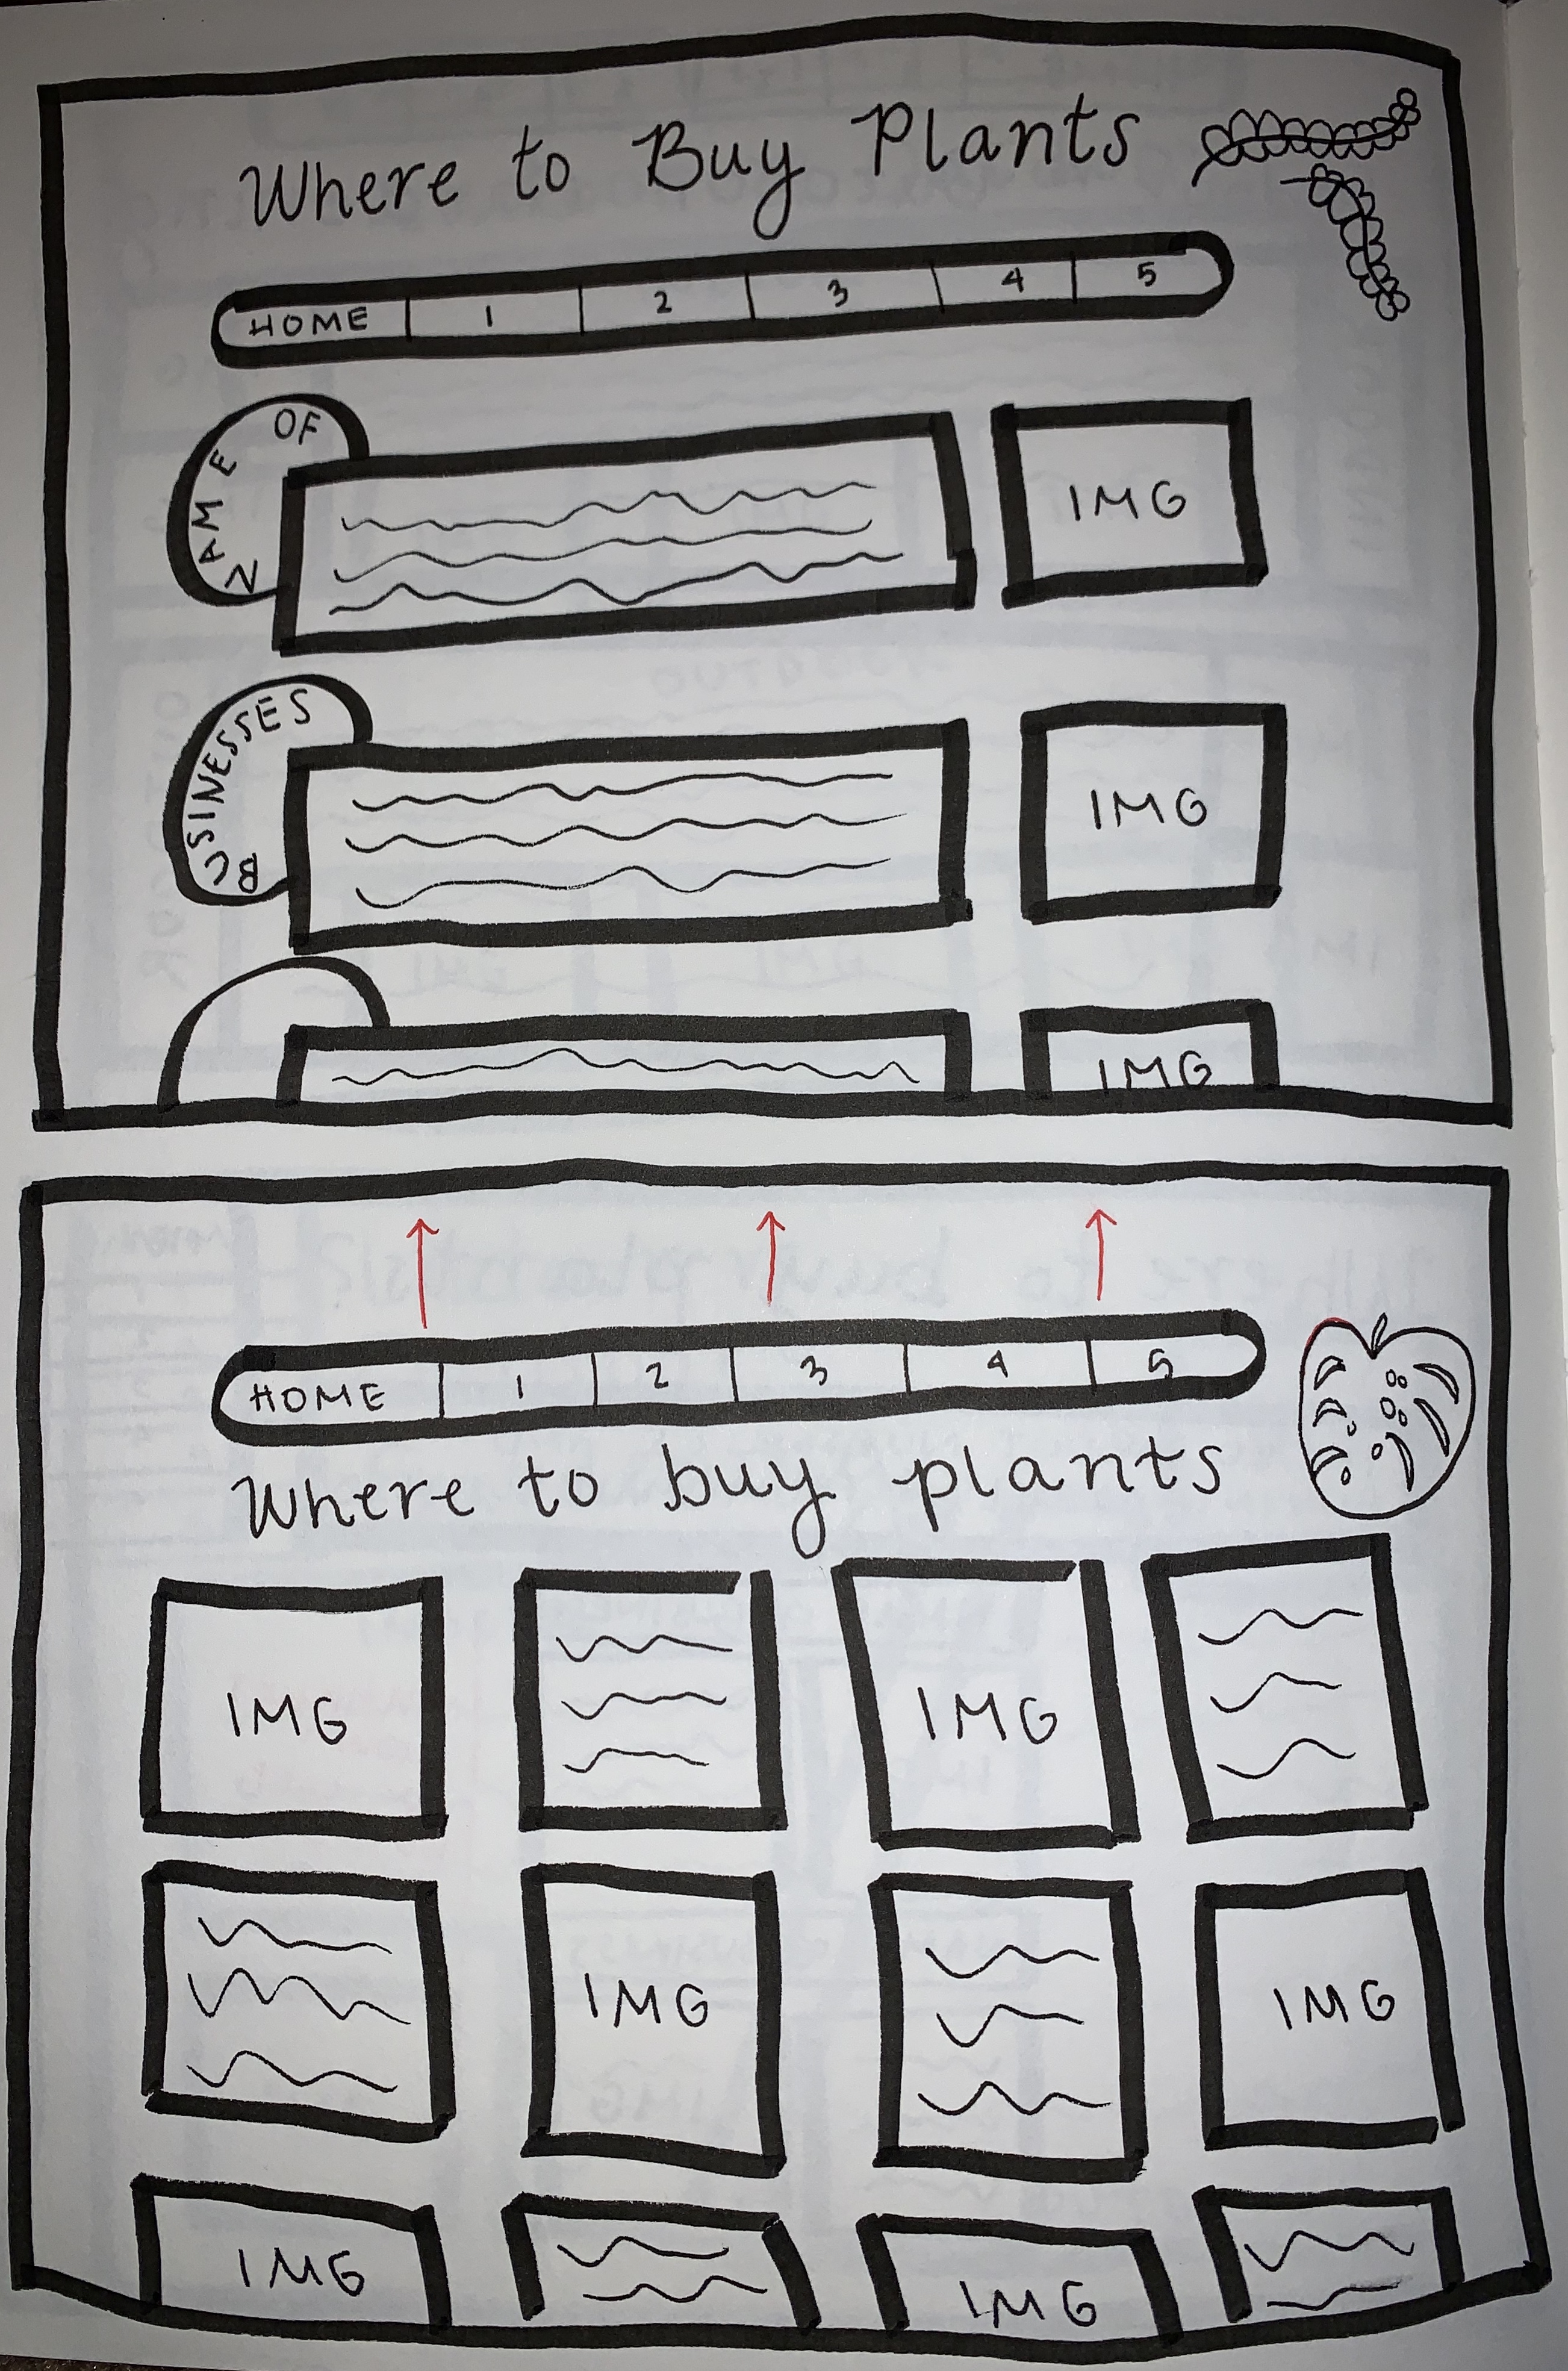 Where to Buy Plants
HOME 1 2 3 4 5
NAME OF
IMG
BUSINESSES
IMG
IMG
HOME 1 2 3 4 5
Where to buy plants
IMG IMG
IMG IMG
IMG IMG